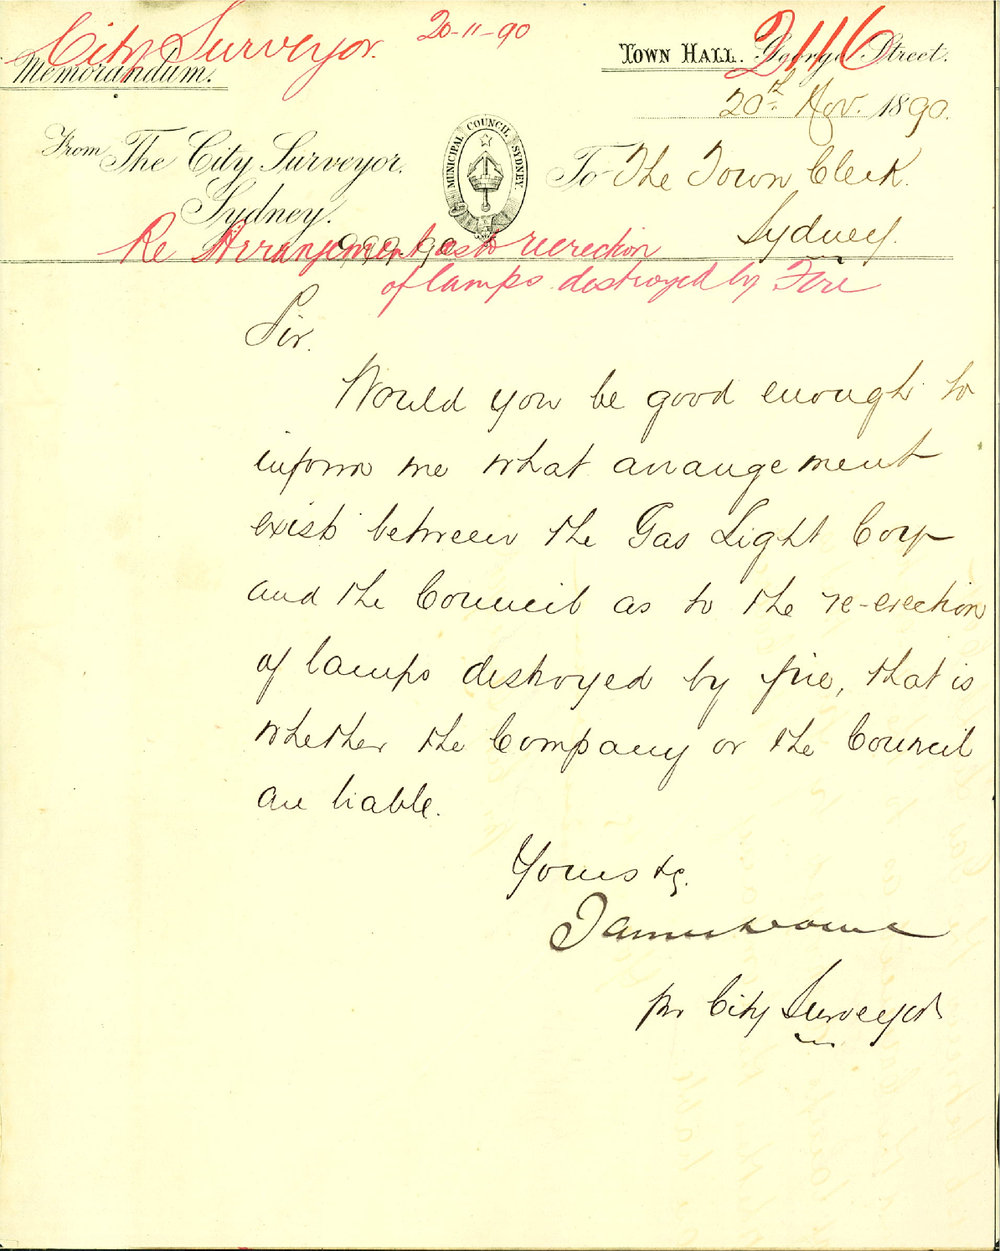 City Surveyor. 20-11-90 2116
Memorandum.
TOWN HALL. George Street.
20th Nov. 1890.
MUNICIPAL COUNCIL SYDNEY
From The City Surveyor.
Sydney.
To The Town Clerk.
Sydney.
Re Arrangement as to reerection
of lamps destroyed by Fire
Sir.
Would you be good enough to
inform me what arrangement
exists between the Gas Light Corp
and the Council as to the re-erection
of lamps destroyed by fire, that is
whether the Company or the Council
are liable.
Yours &c.
pr City Surveyor